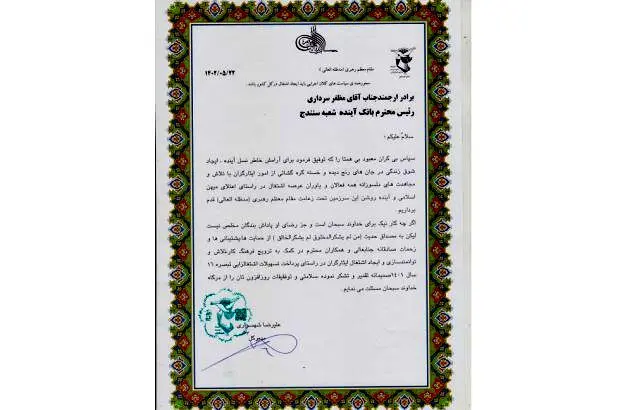 ۱۴۰۲/۰۵/۲۲
مقام معظم رهبری (مدظله العالی) :
سرلوحه ی سیاست های کلان اجرایی باید ایجاد اشتغال در کل کشور باشد.
برادر ارجمند جناب آقای مظفر سرداری
رئیس محترم بانک آینده شعبه سنندج
سلام علیکم ؛
سپاس بی کران معبود بی همتا را که توفیق فرمود برای آرامش خاطر نسل آینده ، ایجاد
شوق زندگی در جان های رنج دیده و خسته گره گشائی از امور ایثارگران با تلاش و
مجاهدت های دلسوزانه همه فعالان و یاوران عرصه اشتغال در راستای اعتلای میهن
اسلامی و آینده روشن این سرزمین تحت زعامت مقام معظم رهبری (مدظله العالی) قدم
برداریم .
اگر چه کار نیک برای خداوند سبحان است و جز رضای او پاداش بندگان مخلص نیست
لیکن به مصداق حدیث (من لم یشکرالمخلوق لم یشکرالخالق ) از حمایت ها،پشتیبانی ها و
زحمات صادقانه جنابعالی و همکاران محترم در کمک به ترویج فرهنگ کاروتلاش و
توانمندسازی و ایجاد اشتغال ایثارگران در راستای پرداخت تسهیلات اشتغالزایی تبصره ۱۶
سال ۱۴۰۱صمیمانه تقدیر و تشکر نموده سلامتی و توفیقات روزافزون تان را از درگاه
خداوند سبحان مسئلت می نمایم.
علیرضا شهسواری
مدیرکل